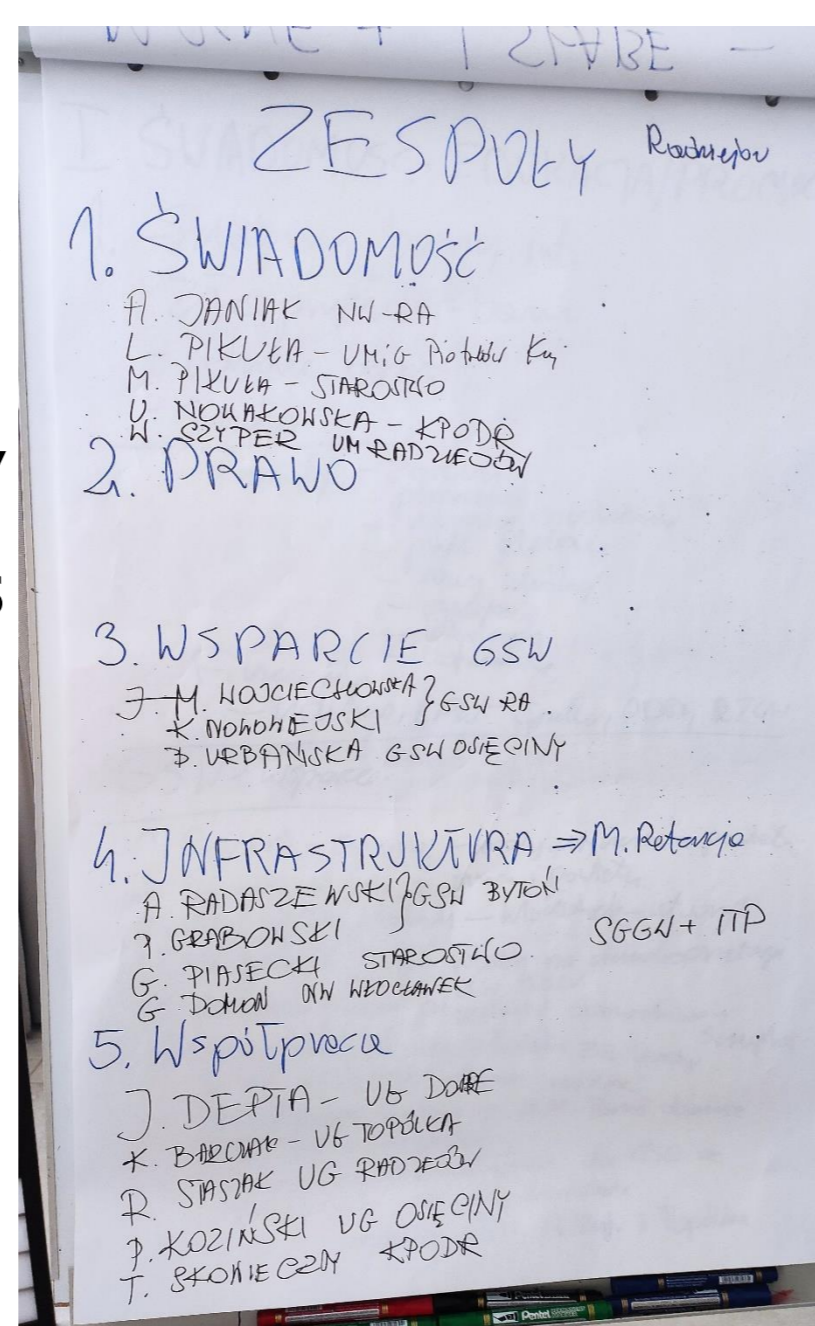 ZESPOŁY Radziejów
1. ŚWIADOMOŚĆ
A. JANIAK NW-RA
L. PIKUŁA - UMiG Piotrków Kuj
M. PIKUŁA - STAROSTWO
U. NOWAKOWSKA - KPODR
W. SZYPER UM RADZIEJÓW
2. PRAWO
3. WSPARCIE GSW
J. M. WOJCIECHOWSKA } GSW RA.
K. NOWOWIEJSKI
P. URBAŃSKA GSW OSIĘCINY
4. INFRASTRUKTURA => M. Retencja
A. RADASZEWSKI } GSW BYTOŃ
P. GRABOWSKI
SGGW + ITP
G. PIASECKI STAROSTWO
G DOMON NW WŁOCŁAWEK
5. Współpraca
J. DEPTA - UG DOBRE
K. BARCZAK - UG TOPÓLKA
R. STASZAK UG RADZIEJÓW
P. KOZIŃSKI UG OSIĘCINY
T. SKONIECZNY KPODR
Pentel